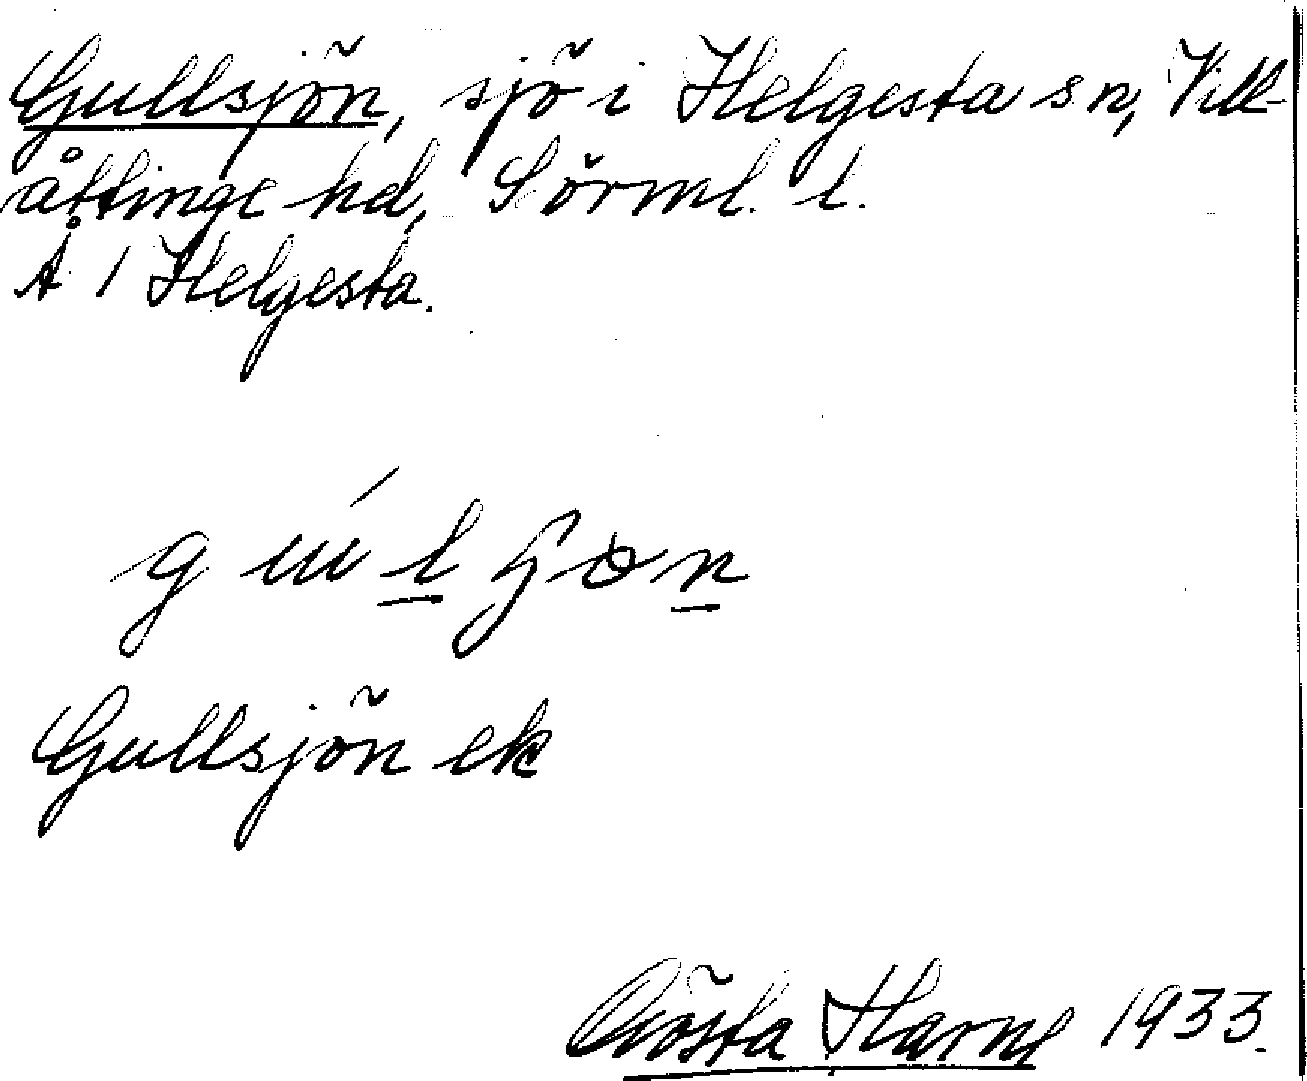 Gullsjön, sjö i Helgesta sn, Vill-
åttinge hd, Sörml. l.
Å 1 Helgesta.
Gullsjön ek
Gösta Harne 1933.